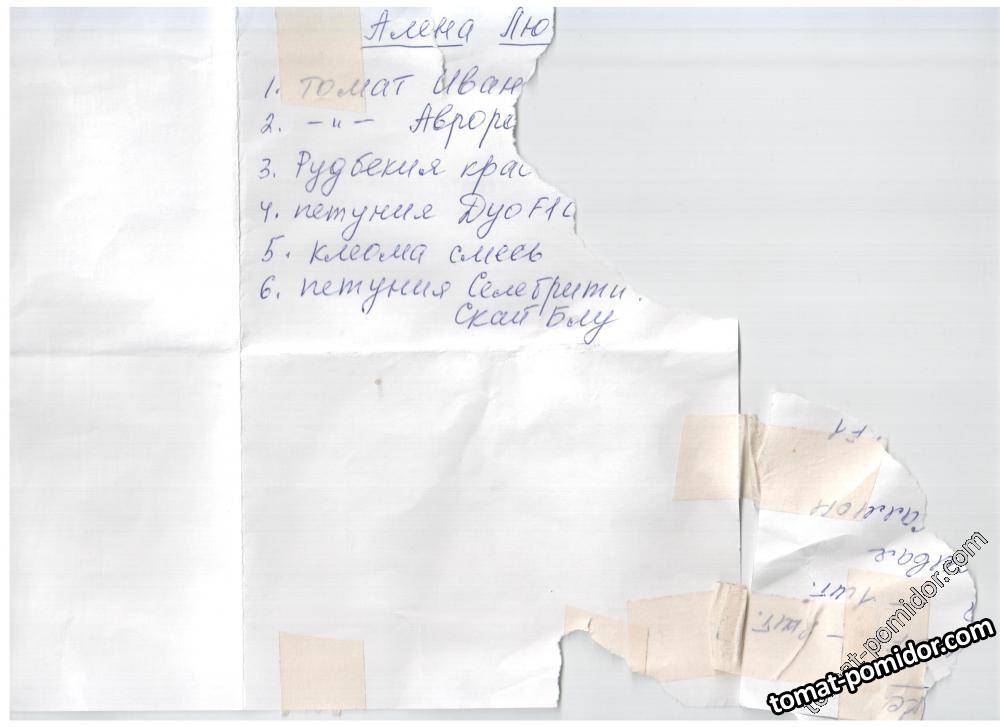 Алена Лю
1. томат Иван
2. –"– Аврора
3. Рудбекия крас
4. петуния Дуо F1 С
5. клеома смесь
6. петуния Селебрити
Скай Блу
F1
1 шт.
tomat-pomidor.com
tomat-pomidor.com